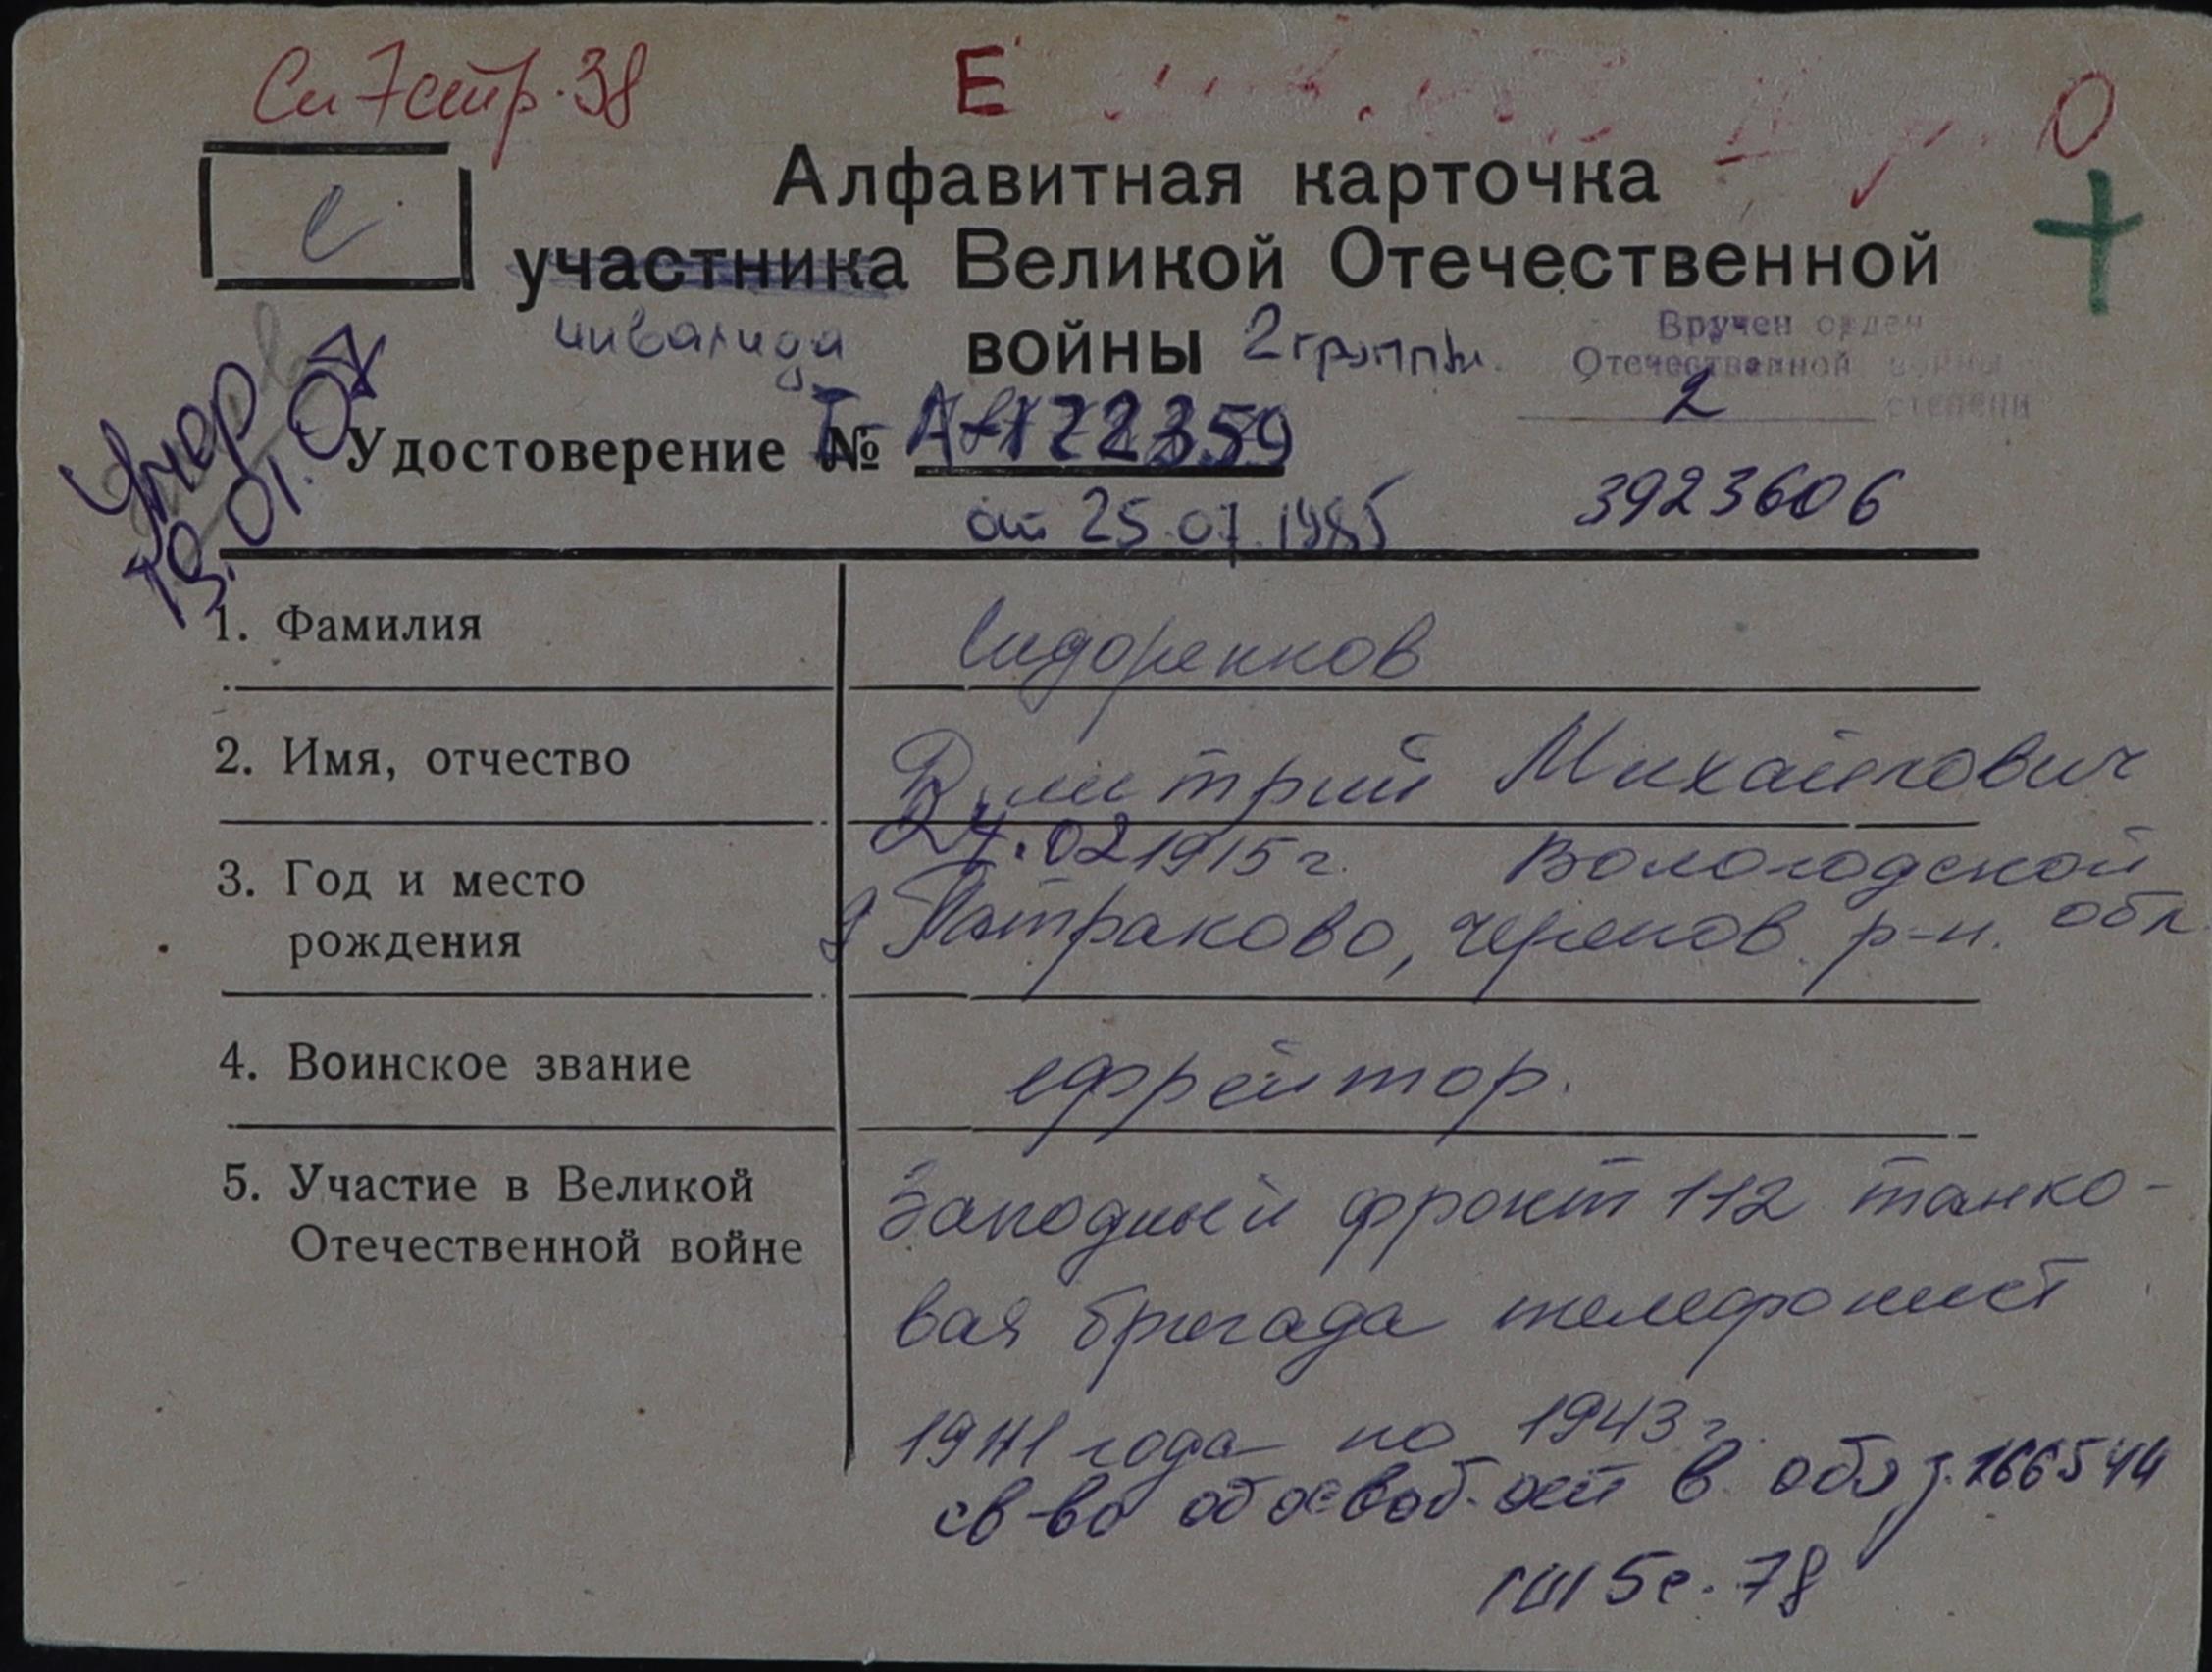 Сп 7 стр. 38
Е
О
С
Алфавитная карточка
участника Великой Отечественной
инвалида войны 2 группы.
Вручен орден
Отечественной войны
2 степени
Умер
19.01.07
Удостоверение № 122359
от 25.07.1985
3923606
1. Фамилия
Сидоренков
2. Имя, отчество
Дмитрий Михайлович
3. Год и место
рождения
24.02 1915 г. Вологодской
д Патраково, черепов. р-н. обл.
4. Воинское звание
ефрейтор.
5. Участие в Великой
Отечественной войне
Западный фронт 112 танко-
вая бригада телефонист
1941 года по 1943 г.
св-во об освоб. от в. обяз.
5с. 78